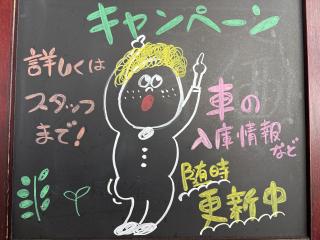 キャンペーン
詳しくは
スタッフ
まで!
車の
入庫情報
など
随時
更新中